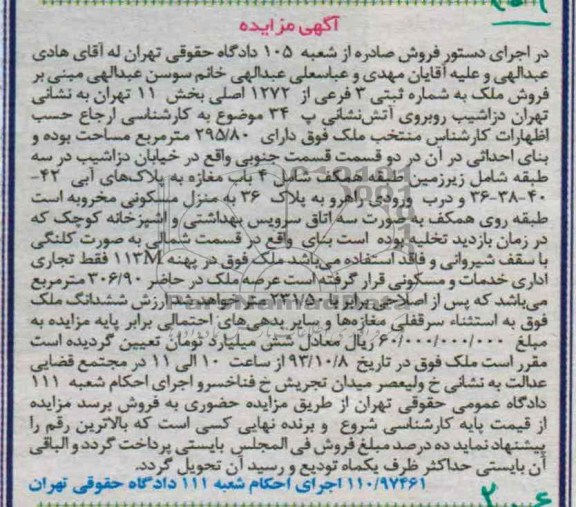 آگهی مزایده
در اجرای دستور فروش صادره از شعبه ۱۰۵ دادگاه حقوقی تهران له آقای هادی
عبدالهی و علیه آقایان مهدی و عباسعلی عبدالهی خانم سوسن عبدالهی مبنی بر
فروش ملک به شماره ثبتی ۳ فرعی از ۱۲۷۲ اصلی بخش ۱۱ تهران به نشانی
تهران دزاشیب روبروی آتش‌نشانی پ ۳۴ موضوع به کارشناسی ارجاع حسب
اظهارات کارشناس منتخب ملک فوق دارای ۲۹۵/۸۰ مترمربع مساحت بوده و
بنای احداثی در آن در دو قسمت قسمت جنوبی واقع در خیابان دزاشیب در سه
طبقه شامل زیرزمین طبقه همکف شامل ۴ باب مغازه به پلاک‌های آبی ۴۲-
۴۰-۳۸-۳۶ و درب ورودی راهرو به پلاک ۳۶ به منزل مسکونی مخروبه است
طبقه روی همکف به صورت سه اتاق سرویس بهداشتی و آشپزخانه کوچک که
در زمان بازدید تخلیه بوده است بنای واقع در قسمت شمالی به صورت کلنگی
با سقف شیروانی و فاقد استفاده می‌باشد ملک فوق در پهنه ۱۱۳M فقط تجاری
اداری خدمات و مسکونی قرار گرفته است عرصه ملک در حاضر ۳۰۶/۹۰ مترمربع
می‌باشد که پس از اصلاحی برابر با ۲۳۱/۵۰ متر خواهد شد ارزش ششدانگ ملک
فوق به استثناء سرقفلی مغازه‌ها و سایر بدهی‌های احتمالی برابر پایه مزایده به
مبلغ ۶۰/۰۰۰/۰۰۰/۰۰۰ ریال معادل شش میلیارد تومان تعیین گردیده است
مقرر است ملک فوق در تاریخ ۹۳/۱۰/۸ از ساعت ۱۰ الی ۱۱ در مجتمع قضایی
عدالت به نشانی خ ولیعصر میدان تجریش خ فناخسرو اجرای احکام شعبه ۱۱۱
دادگاه عمومی حقوقی تهران از طریق مزایده حضوری به فروش برسد مزایده
از قیمت پایه کارشناسی شروع و برنده نهایی کسی است که بالاترین رقم را
پیشنهاد نماید ده درصد مبلغ فروش فی المجلس بایستی پرداخت گردد و الباقی
آن بایستی حداکثر ظرف یکماه تودیع و رسید آن تحویل گردد.
۱۱۰/۹۷۴۶۱ اجرای احکام شعبه ۱۱۱ دادگاه حقوقی تهران